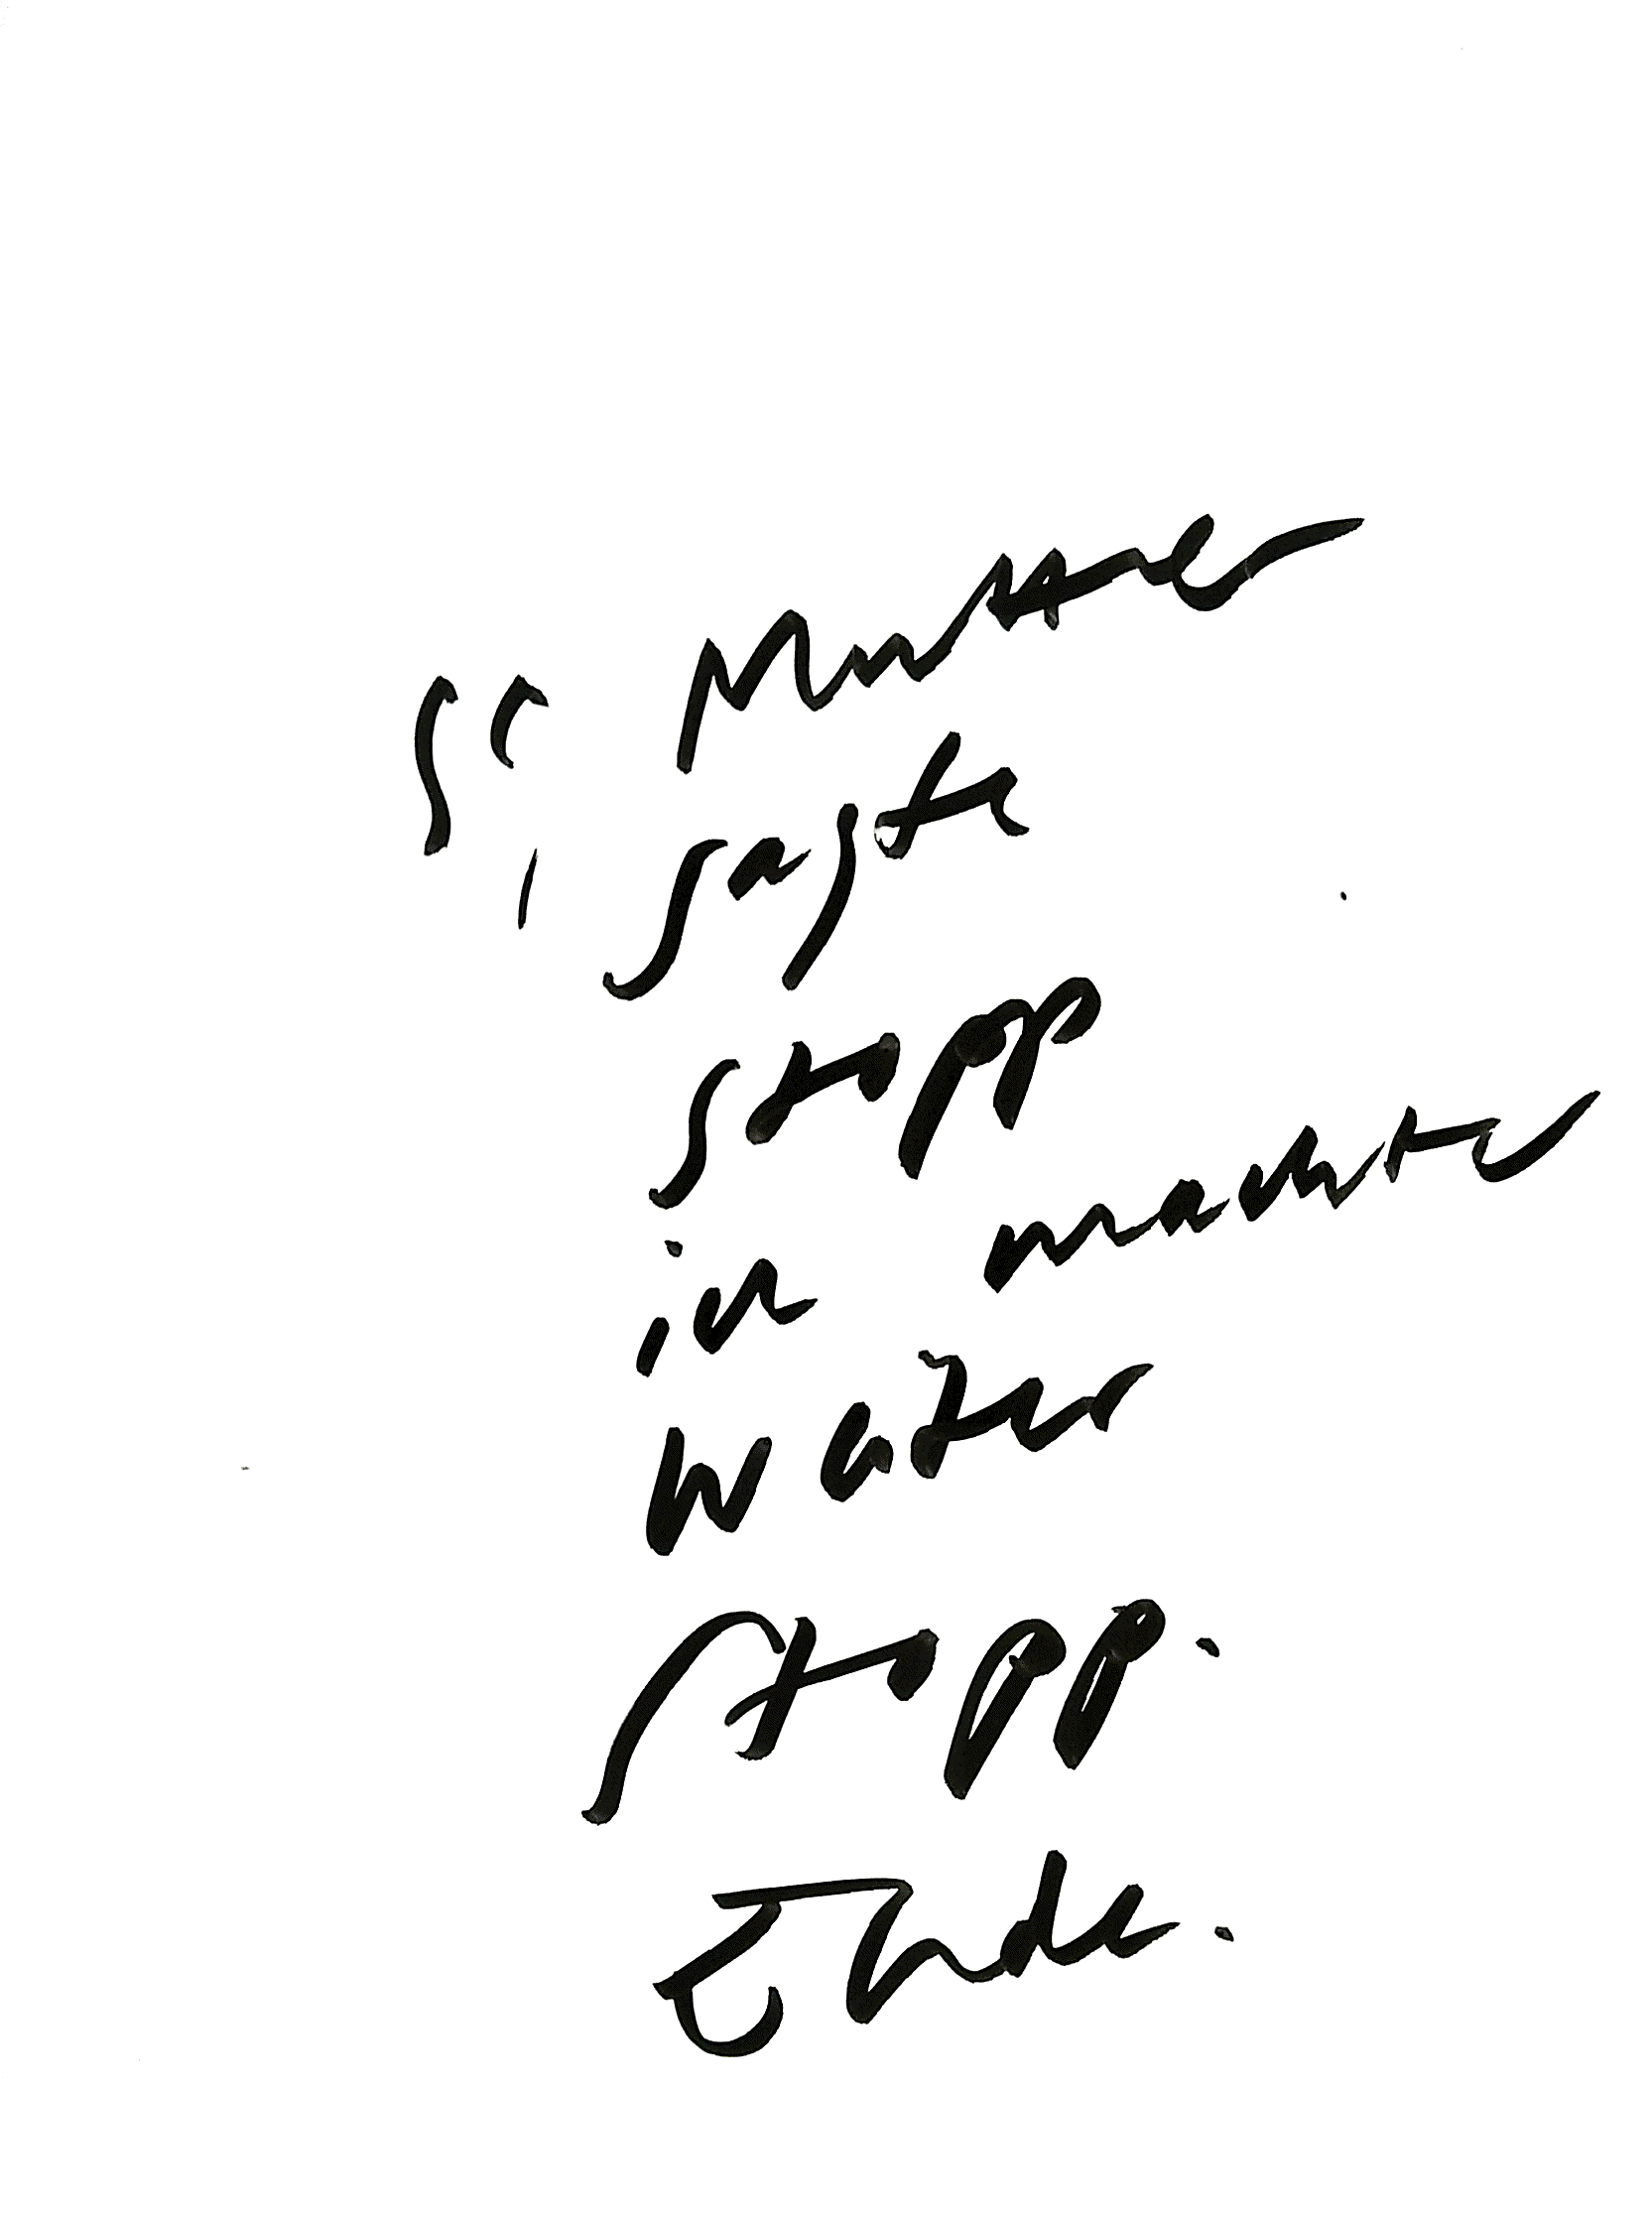 Mutter
sagte
stopp
in machte
Water
stopp.
Ende.